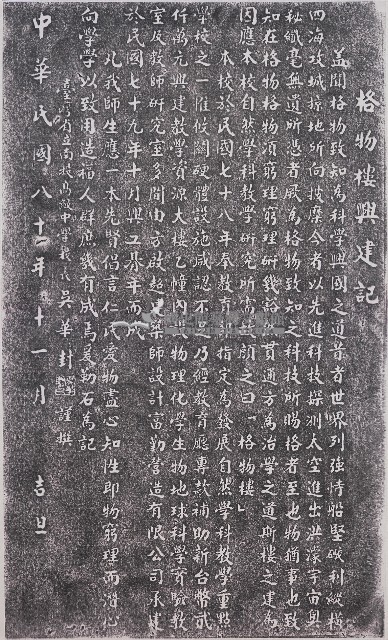 格物樓興建記
蓋聞格物致知為科學興國之道昔者世界列強恃船堅礮利縱橫
四海攻城掠地所向披靡今者以先進科技探測太空進出洪濛宇宙奧
秘纖毫無遺所憑者厥為格物致知之科技所賜格者至也物猶事也致
知在格物格物須窮理窮理研幾豁然貫通方為治學之道斯樓之建為
因應本校自然學科教學研究所需故顏之曰「格物樓」
本校於民國七十八年奉教育部指定為發展自然學科教學重點
學校之一惟攸關硬體設施咸認不足乃經教育廳專款補助新台幣貳
仟萬元興建教學資源大樓乙幢內設物理化學生物地球科學實驗教
室及教師研究室多間由方啟超建築師設計富勤營造有限公司承建
於民國七十九年十月興工朞年而成
凡我師生應一本先賢倡言仁民愛物盡心知性即物窮理而潛心
向學學以致用造福人群庶幾有成焉爰勒石為記
臺灣省立南投高級中學校長 吳華封 謹撰
中華民國八十一年十一月 吉旦